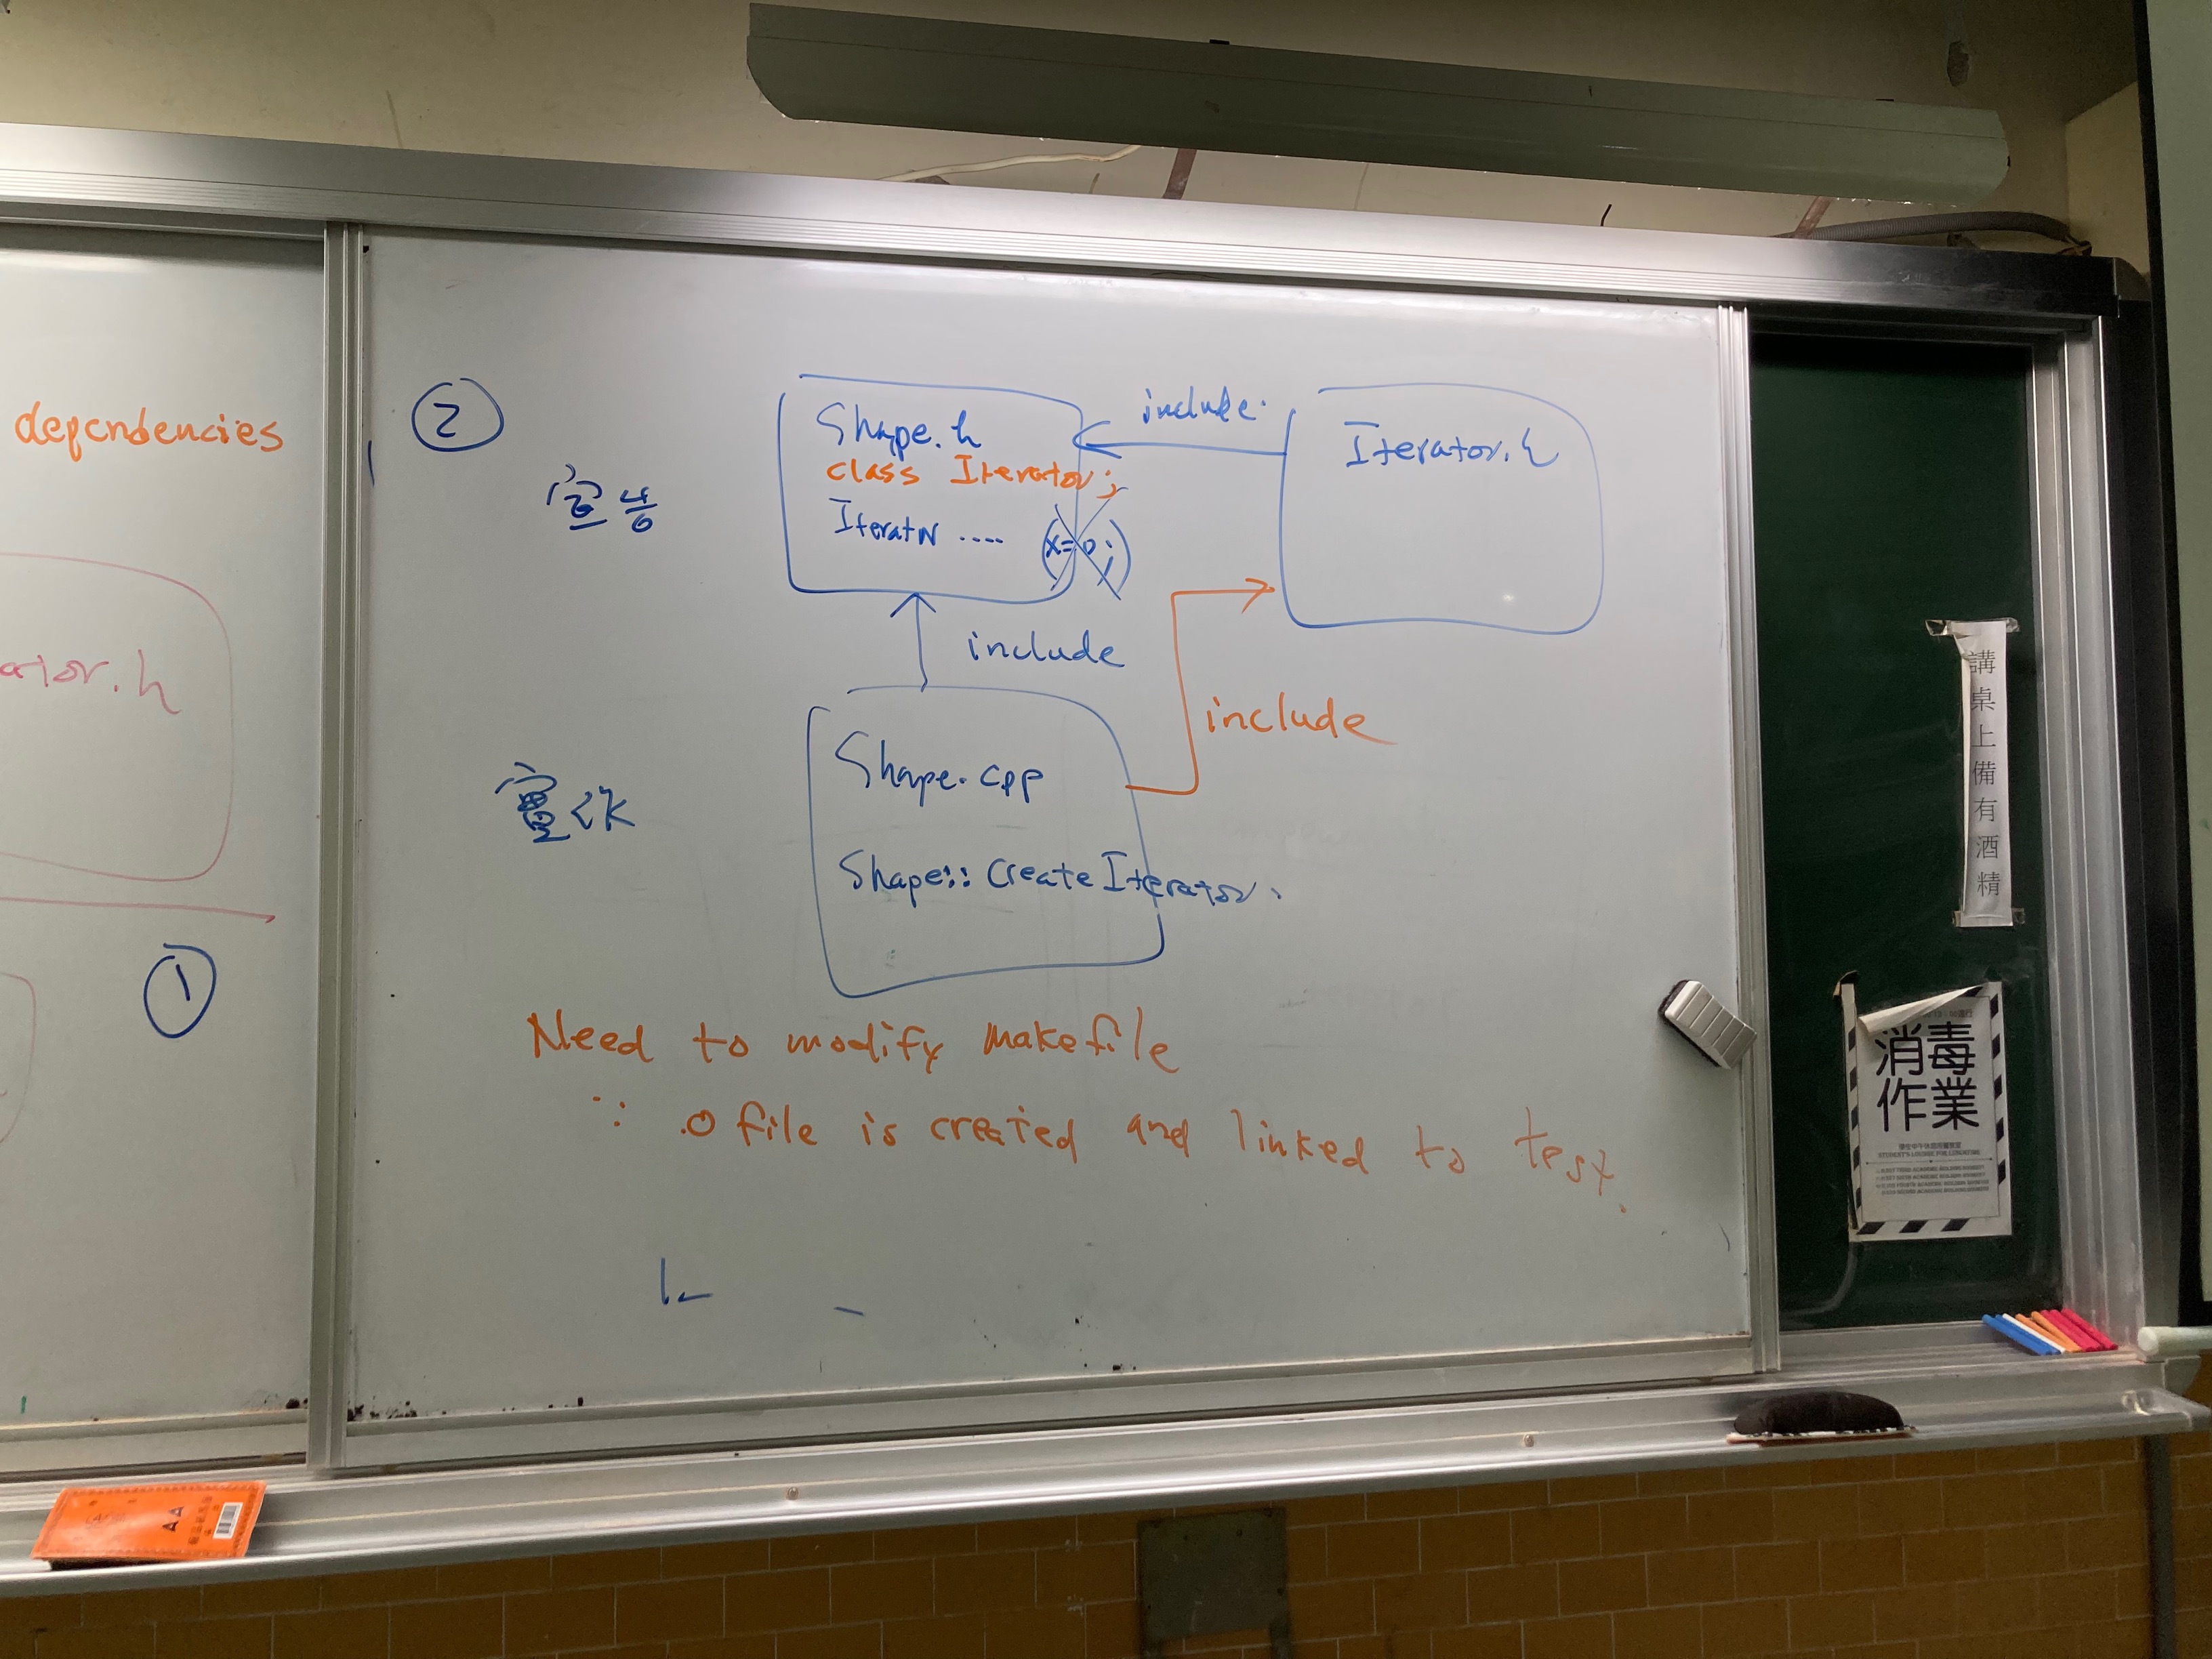 dependencies
ator.h
①
②
宣告
Shape.h
class Iterator;
Iterator ....
(x=0;)
include
Iterator.h
include
include
實作
Shape.cpp
Shape::CreateIterator
Need to modify makefile
∵ .o file is created and linked to test.
講桌上備有酒精
消毒
作業